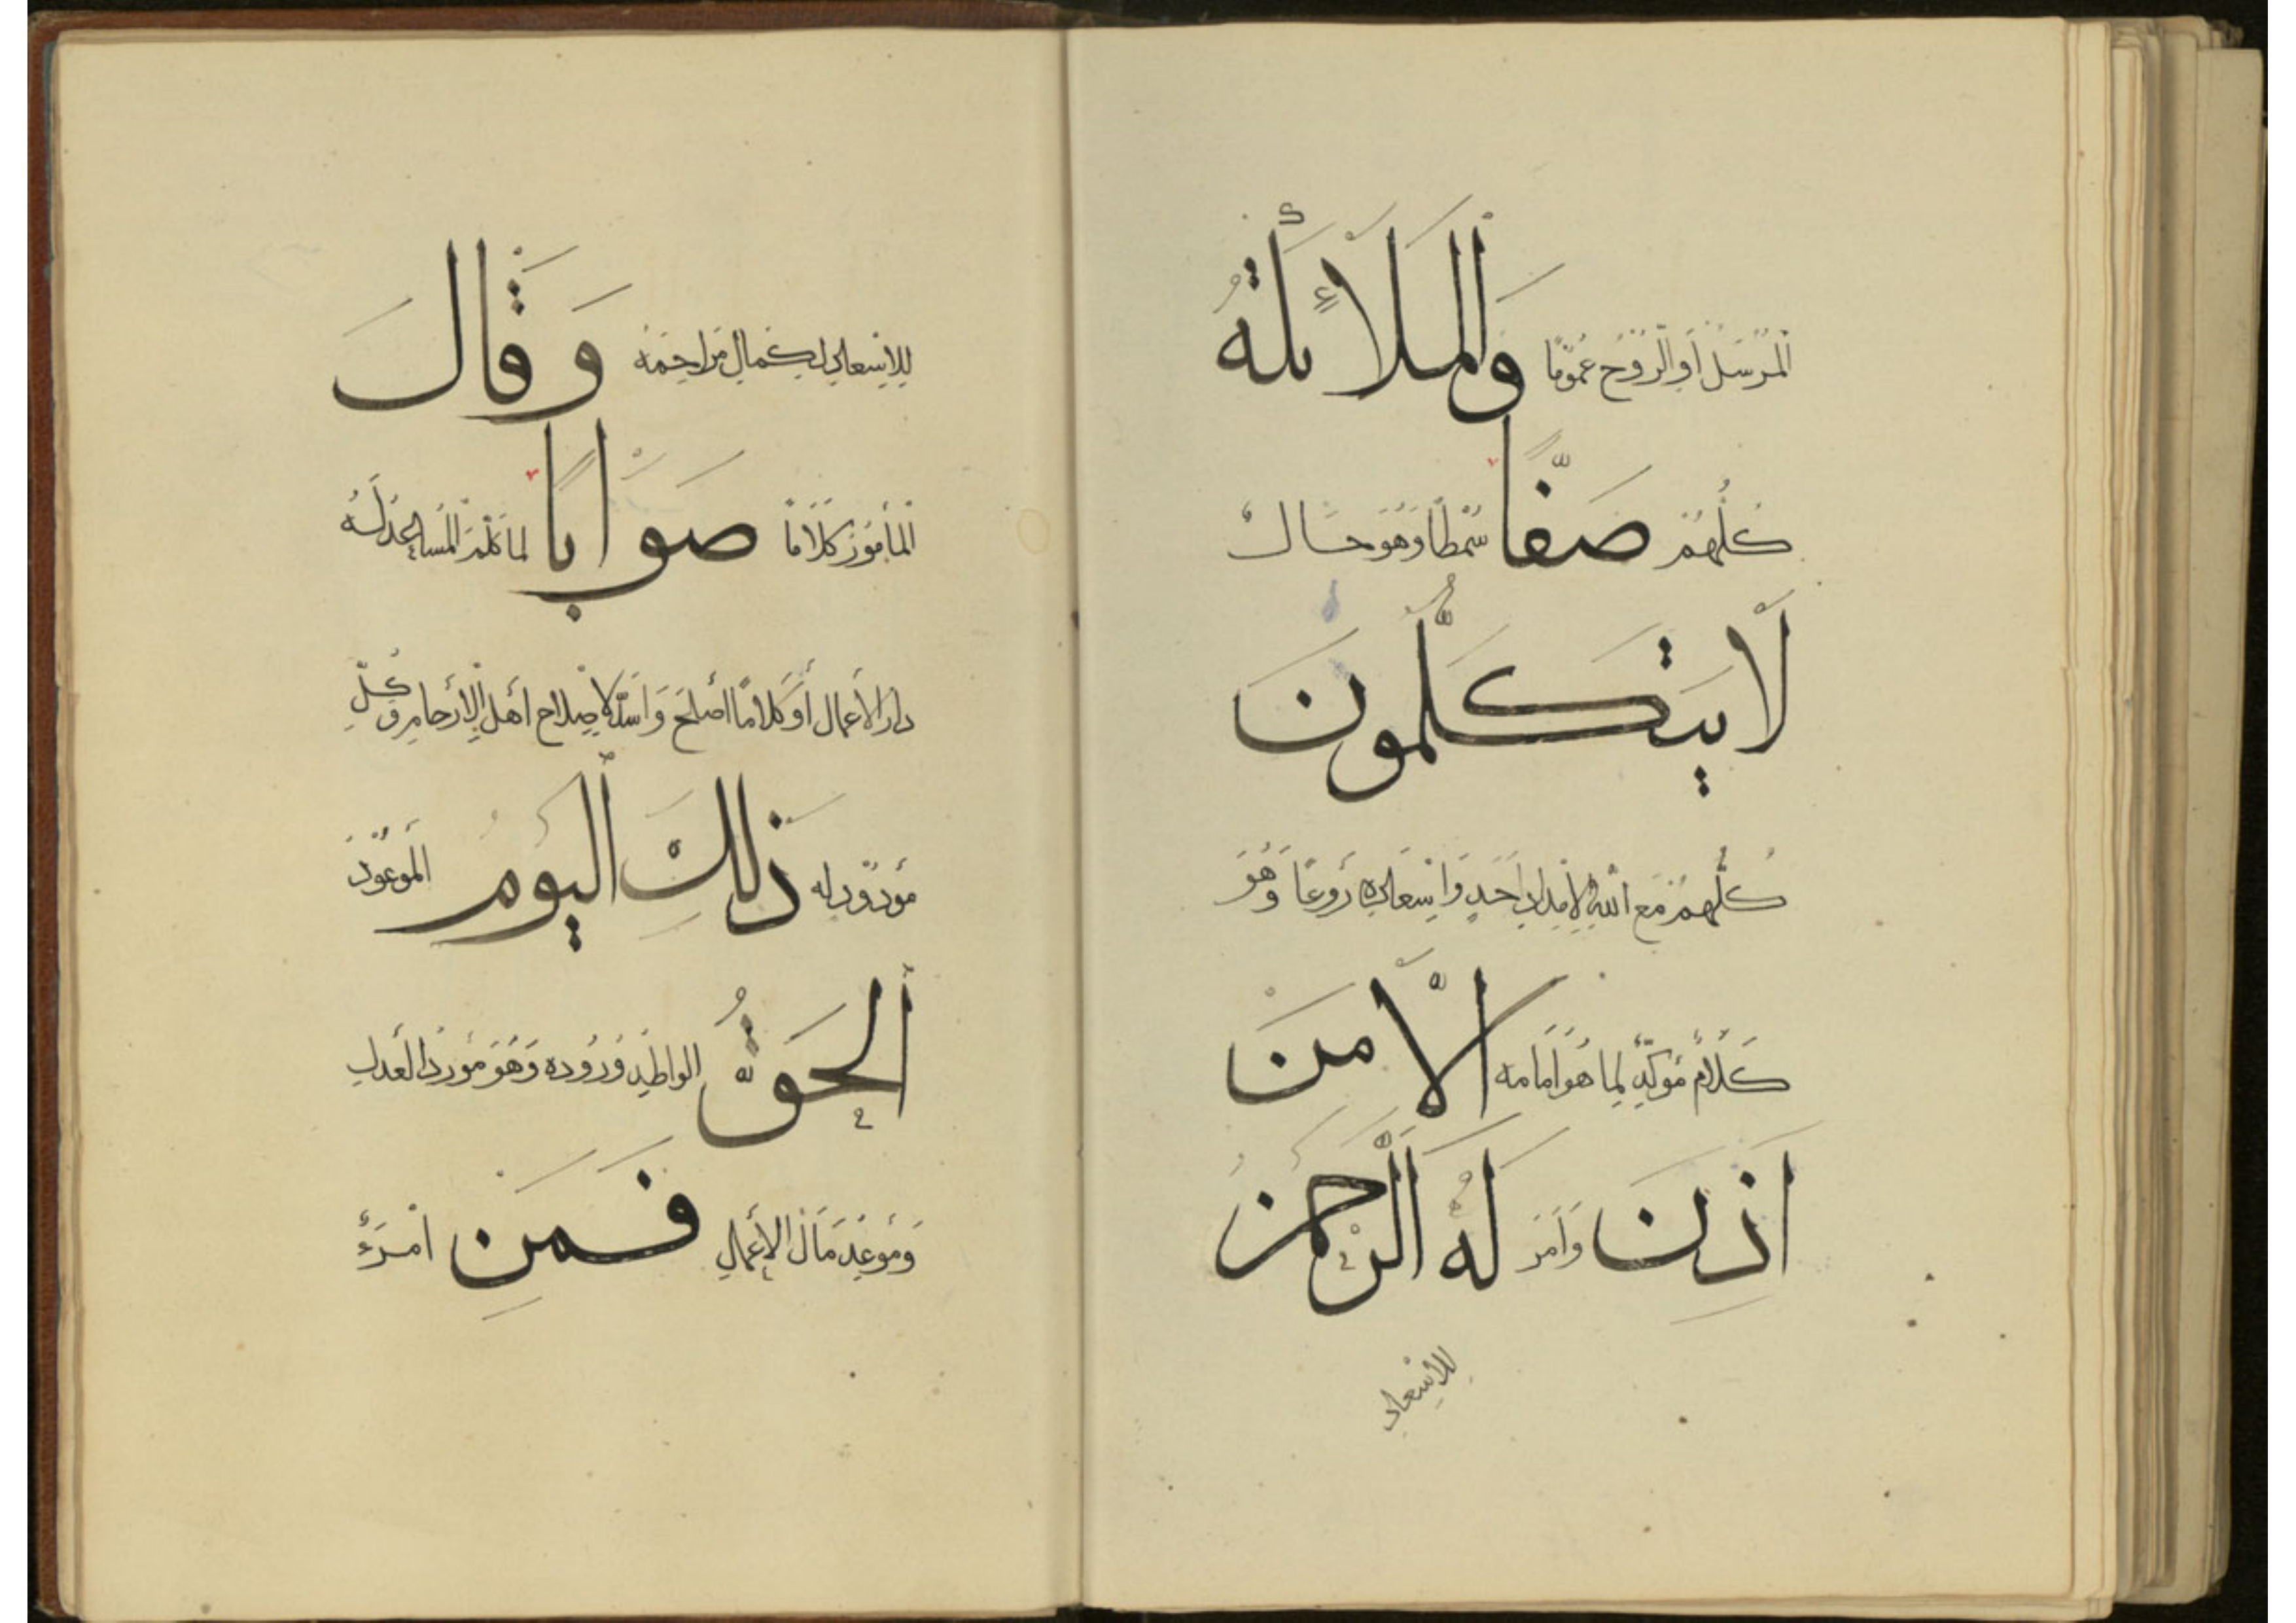 المرسل أو الروح عموما وَالْمَلَائِكَةُ
كُلُّهُمْ صَفًّا سمطا وهو حال
لَا يَتَكَلَّمُونَ
كلهم مع الله لإمداد أحد وإسعاده روعا وهو
كلام مؤكد لما هو أمامه إِلَّا مَنْ
أَذِنَ وأمر لَهُ الرَّحْمَنُ
للإسعاد
للإسعاد لكمال مراحمه وَقَالَ
المأمور كلاما صَوَابًا لما كلم المساعد له
دار الأعمال أو كلاما أصلح وأسد لإصلاح أهل الأرحام وكل
مودود له ذَلِكَ الْيَوْمُ الموعود
الْحَقُّ الواطد وروده وهو مورد العدل
وموعد مآل الأعمال فَمَنْ امرء